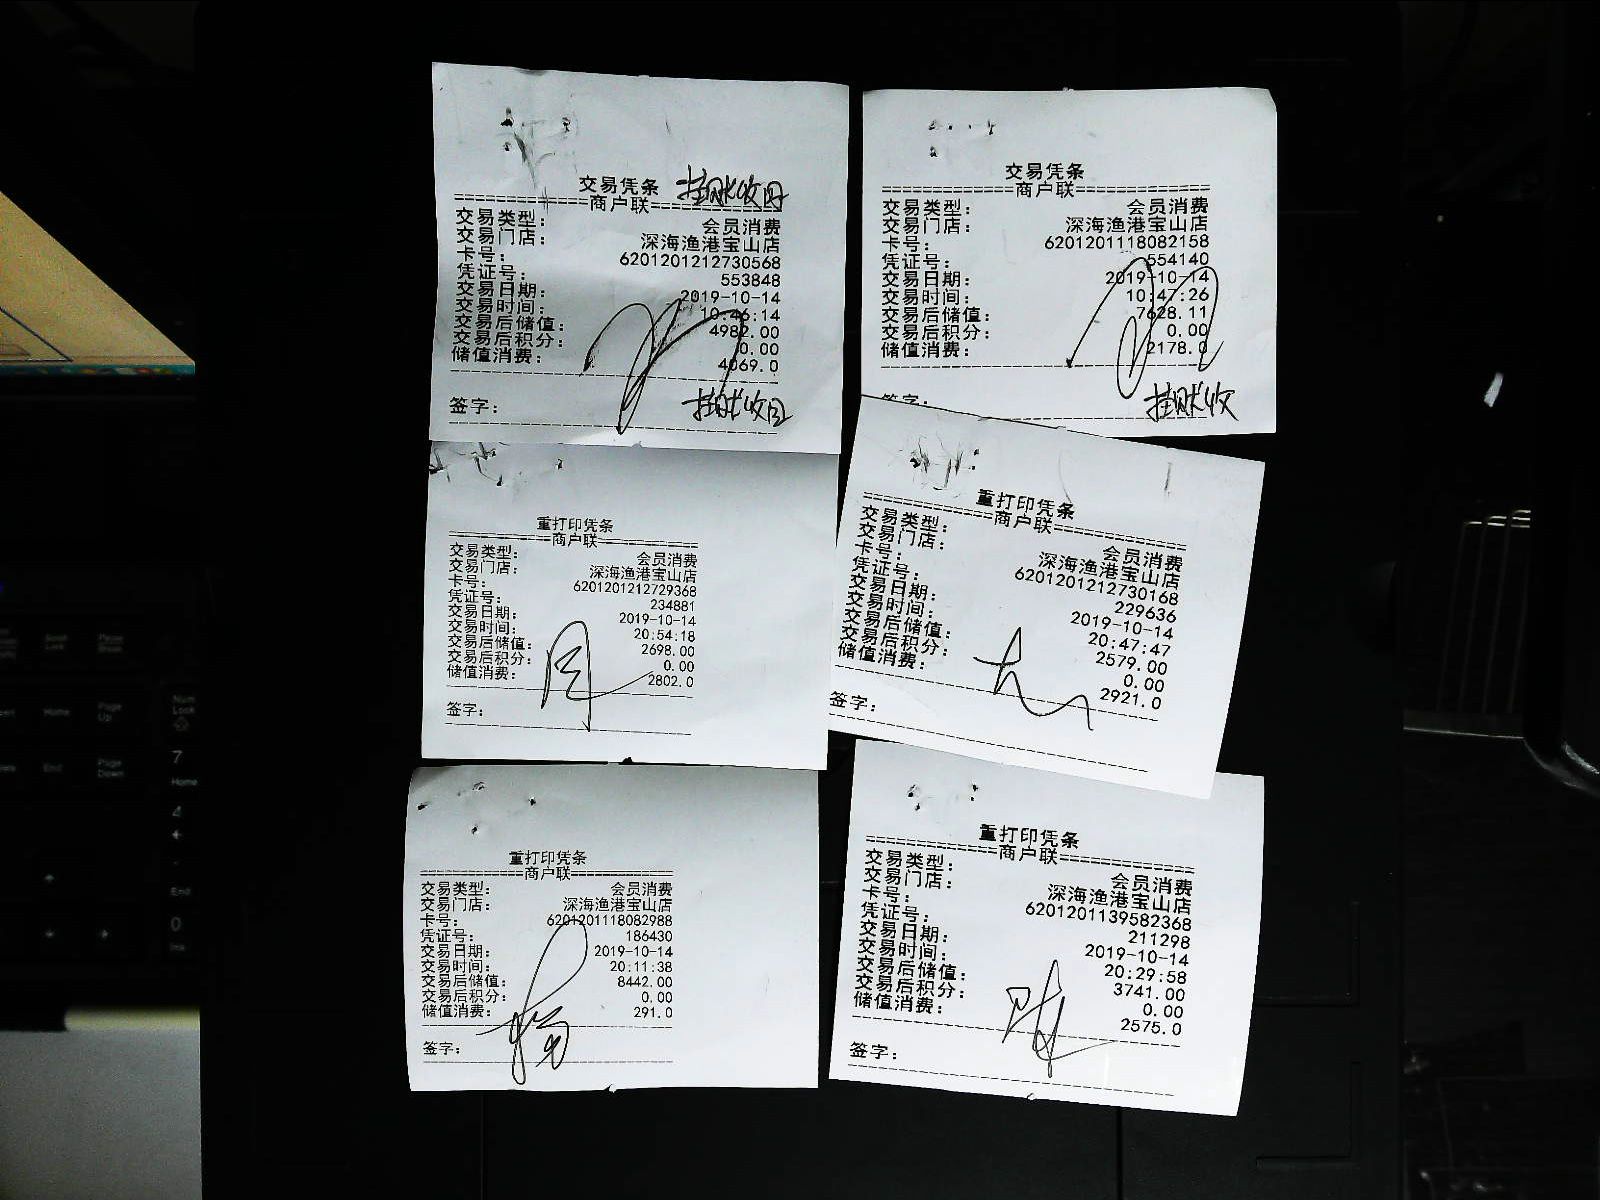 交易凭条 挂账收回
==============商户联==============
交易类型: 会员消费
交易门店: 深海渔港宝山店
卡号: 6201201212730568
凭证号: 553848
交易日期: 2019-10-14
交易时间: 10:46:14
交易后储值: 4982.00
交易后积分: 0.00
储值消费: 4069.0
签字: 挂账收回
交易凭条
==============商户联==============
交易类型: 会员消费
交易门店: 深海渔港宝山店
卡号: 6201201118082158
凭证号: 554140
交易日期: 2019-10-14
交易时间: 10:47:26
交易后储值: 7628.11
交易后积分: 0.00
储值消费: 2178.0
签字: 挂账收
重打印凭条
==============商户联==============
交易类型: 会员消费
交易门店: 深海渔港宝山店
卡号: 6201201212729368
凭证号: 234881
交易日期: 2019-10-14
交易时间: 20:54:18
交易后储值: 2698.00
交易后积分: 0.00
储值消费: 2802.0
签字:
重打印凭条
==============商户联==============
交易类型: 会员消费
交易门店: 深海渔港宝山店
卡号: 6201201212730168
凭证号: 229636
交易日期: 2019-10-14
交易时间: 20:47:47
交易后储值: 2579.00
交易后积分: 0.00
储值消费: 2921.0
签字:
重打印凭条
==============商户联==============
交易类型: 会员消费
交易门店: 深海渔港宝山店
卡号: 6201201118082988
凭证号: 186430
交易日期: 2019-10-14
交易时间: 20:11:38
交易后储值: 8442.00
交易后积分: 0.00
储值消费: 291.0
签字:
重打印凭条
==============商户联==============
交易类型: 会员消费
交易门店: 深海渔港宝山店
卡号: 6201201139582368
凭证号: 211298
交易日期: 2019-10-14
交易时间: 20:29:58
交易后储值: 3741.00
交易后积分: 0.00
储值消费: 2575.0
签字:
Num
Lock
Home
Page
Up
7
Home
End
Page
Down
4
End
0
Ins